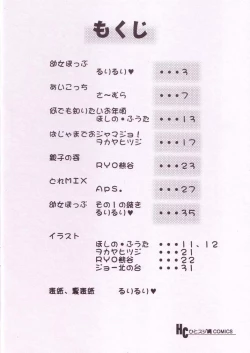 もくじ
幼女ほっぷ
るりるり♥ ・・・3
あいこっち
さ〜ぼら ・・・7
何でも知りたいお年頃
ほしの・ふうた ・・・13
はじゃまでおジャマジョ!
ヲカヤヒツジ ・・・17
親子の容
RYO熊谷 ・・・23
とれMIX
APS。 ・・・27
幼女ほっぷ その1の続き
るりるり♥ ・・・35
イラスト
ほしの・ふうた ・・・11、12
ヲカヤヒツジ ・・・21
RYO熊谷 ・・・22
ジョー北の台 ・・・31
るりるり♥
HC ひとスジ COMICS